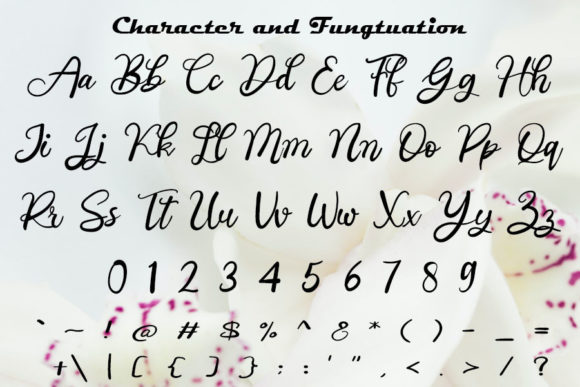 Character and Fungtuation
Aa Bb Cc Dd Ee Ff Gg Hh
Ii Jj Kk Ll Mm Nn Oo Pp Qq
Rr Ss Tt Uu Vv Ww Xx Yy Zz
0 1 2 3 4 5 6 7 8 9
` ~ ! @ # $ % ^ & * ( ) - _ =
+ \ | [ { ] } ; : ' " , < . > / ?